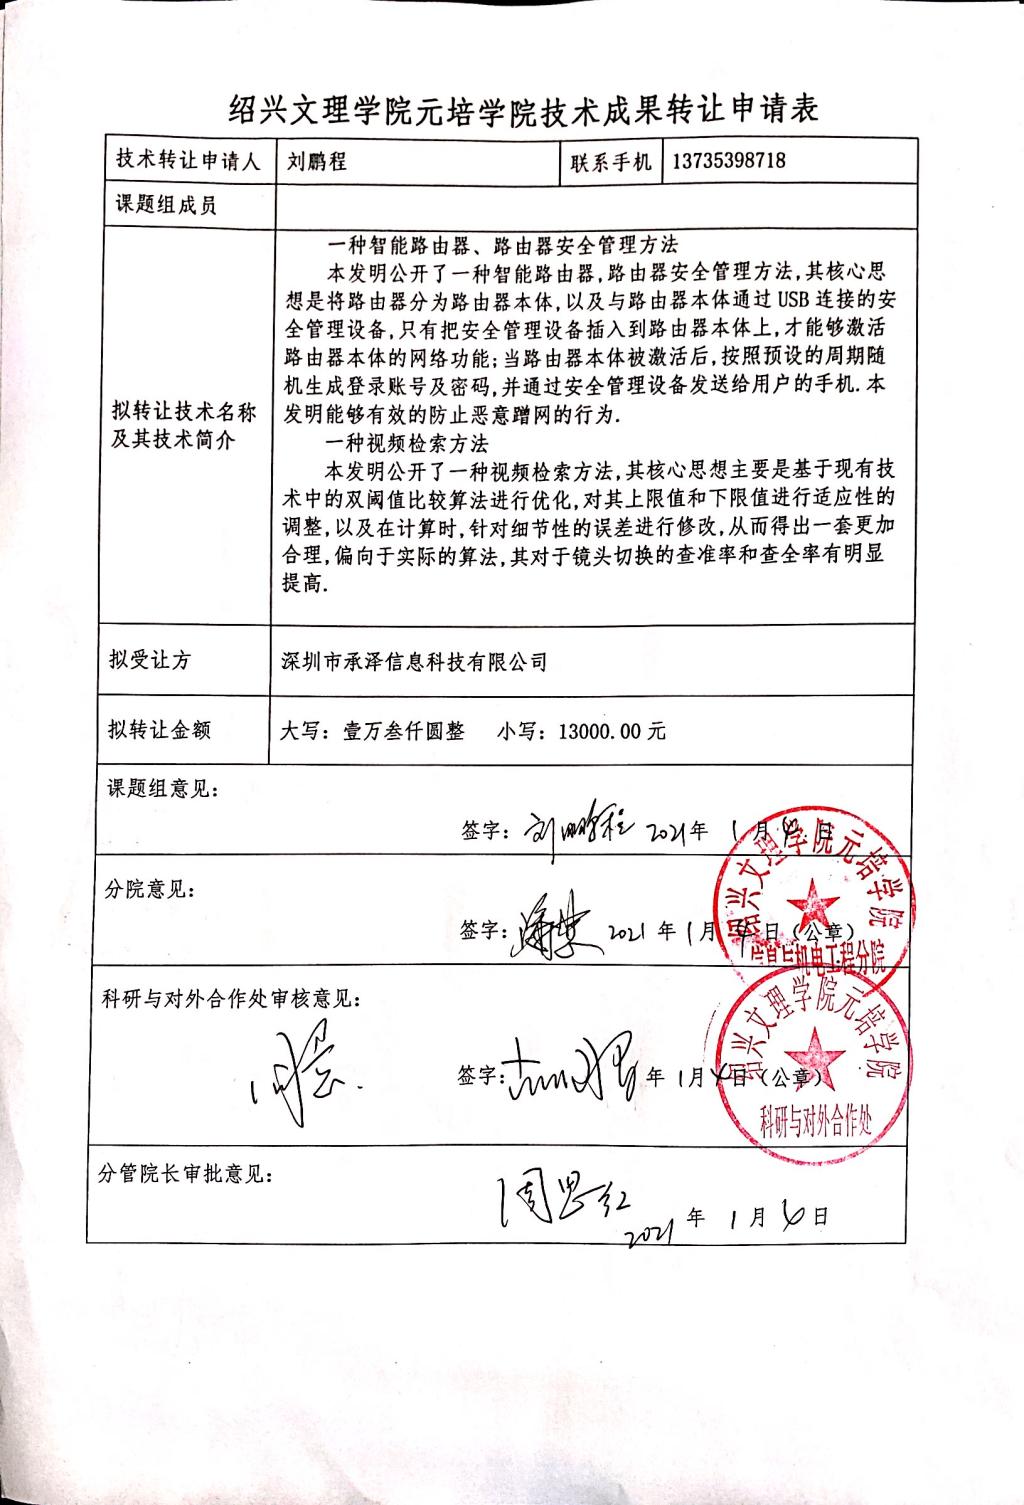 绍兴文理学院元培学院技术成果转让申请表
技术转让申请人 刘鹏程 联系手机 13735398718
课题组成员
拟转让技术名称及其技术简介
一种智能路由器、路由器安全管理方法
本发明公开了一种智能路由器,路由器安全管理方法,其核心思
想是将路由器分为路由器本体,以及与路由器本体通过 USB 连接的安
全管理设备,只有把安全管理设备插入到路由器本体上,才能够激活
路由器本体的网络功能;当路由器本体被激活后,按照预设的周期随
机生成登录账号及密码,并通过安全管理设备发送给用户的手机.本
发明能够有效的防止恶意蹭网的行为.
一种视频检索方法
本发明公开了一种视频检索方法,其核心思想主要是基于现有技
术中的双阈值比较算法进行优化,对其上限值和下限值进行适应性的
调整,以及在计算时,针对细节性的误差进行修改,从而得出一套更加
合理,偏向于实际的算法,其对于镜头切换的查准率和查全率有明显
提高.
拟受让方 深圳市承泽信息科技有限公司
拟转让金额 大写：壹万叁仟圆整 小写：13000.00 元
课题组意见：
签字：刘鹏程 2021年 1月 日
分院意见：
签字： 2021 年 1月 日（公章）
绍兴文理学院元培学院
信息与机电工程分院
科研与对外合作处审核意见：
签字： 年 1月 日（公章）
绍兴文理学院元培学院
科研与对外合作处
分管院长审批意见：
周恩红
2021 年 1月 日